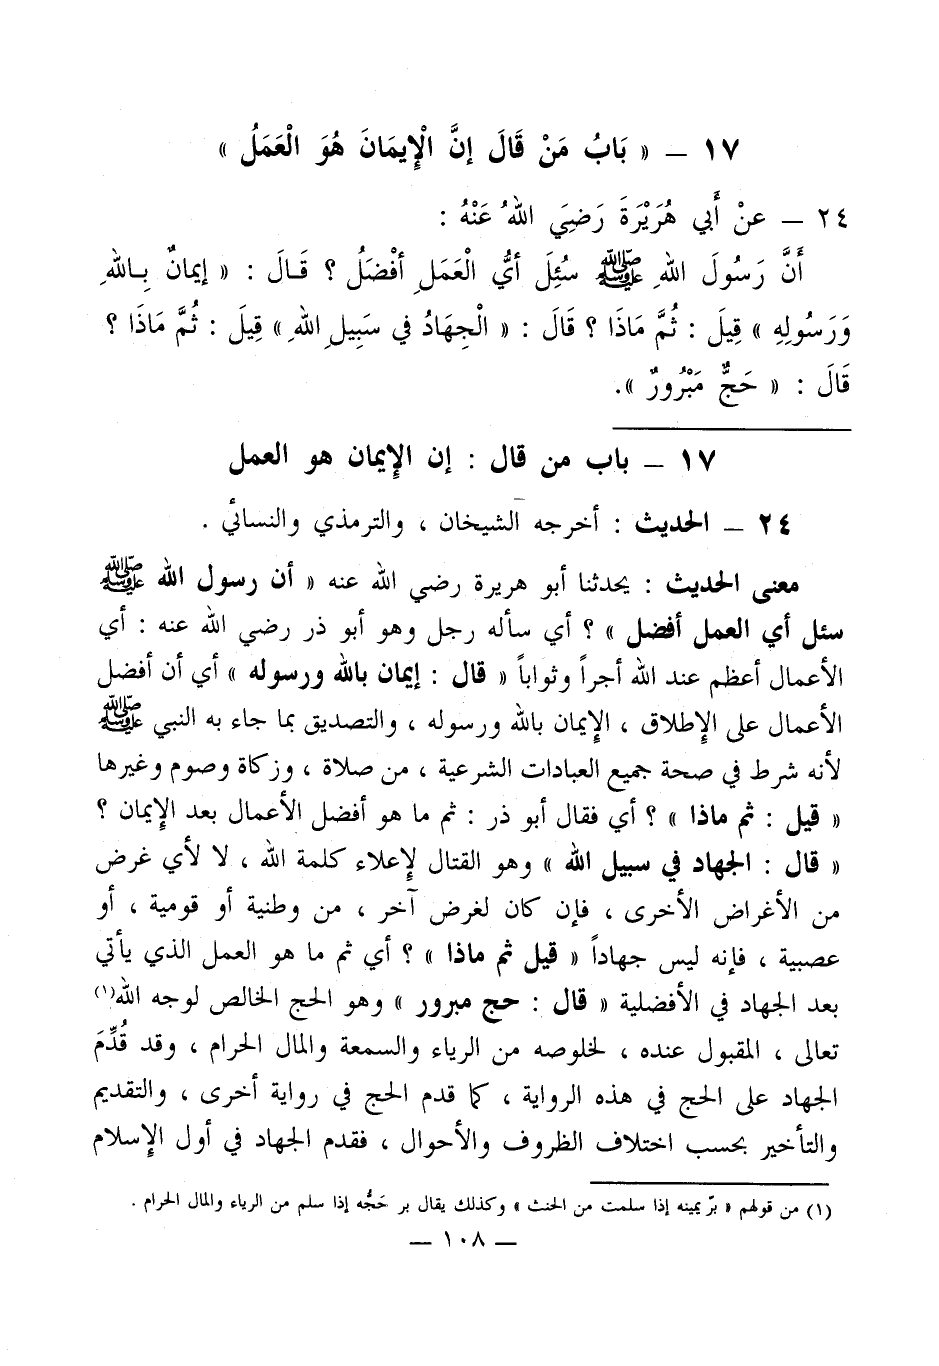 ١٧ – « بَابُ مَنْ قَالَ إنَّ الْإِيمَانَ هُوَ الْعَمَلُ »
٢٤ – عنْ أَبي هُرَيْرَةَ رَضِيَ اللهُ عَنْهُ :
أَنَّ رَسُولَ اللهِ ﷺ سُئِلَ أيُّ الْعَمَلِ أفْضَلُ ؟ قَالَ : « إيمَانٌ بِاللهِ
وَرَسُولِهِ » قِيلَ : ثُمَّ مَاذَا ؟ قَالَ : « الْجِهَادُ في سَبِيلِ اللهِ » قِيلَ : ثُمَّ مَاذَا ؟
قَالَ : « حَجٌّ مَبْرُورٌ ».
١٧ – باب من قال : إن الإيمان هو العمل
٢٤ – الحديث : أخرجه الشيخان ، والترمذي والنسائي .
معنى الحديث : يحدثنا أبو هريرة رضي الله عنه « أن رسول الله ﷺ
سئل أي العمل أفضل » ؟ أي سأله رجل وهو أبو ذر رضي الله عنه : أي
الأعمال أعظم عند الله أجراً وثواباً « قال : إيمان بالله ورسوله » أي أن أفضل
الأعمال على الإطلاق ، الإيمان بالله ورسوله ، والتصديق بما جاء به النبي ﷺ
لأنه شرط في صحة جميع العبادات الشرعية ، من صلاة ، وزكاة وصوم وغيرها
« قيل : ثم ماذا » ؟ أي فقال أبو ذر : ثم ما هو أفضل الأعمال بعد الإيمان ؟
« قال : الجهاد في سبيل الله » وهو القتال لإعلاء كلمة الله ، لا لأي غرض
من الأغراض الأخرى ، فإن كان لغرض آخر ، من وطنية أو قومية ، أو
عصبية ، فإنه ليس جهاداً « قيل ثم ماذا » ؟ أي ثم ما هو العمل الذي يأتي
بعد الجهاد في الأفضلية « قال : حج مبرور » وهو الحج الخالص لوجه الله(١)
تعالى ، المقبول عنده ، لخلوصه من الرياء والسمعة والمال الحرام ، وقد قُدِّمَ
الجهاد على الحج في هذه الرواية ، كما قدم الحج في رواية أخرى ، والتقديم
والتأخير بحسب اختلاف الظروف والأحوال ، فقدم الجهاد في أول الإسلام
(١) من قولهم « برّ يمينه إذا سلمت من الحنث » وكذلك يقال بر حَجُّه إذا سلم من الرياء والمال الحرام .
– ١٠٨ –